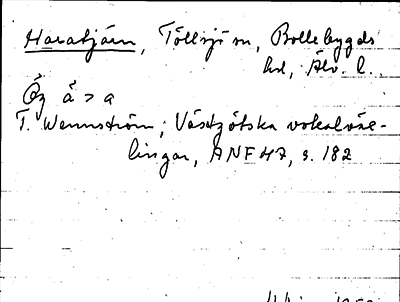 Haratjärn, Töllsjö sn, Bollebygds
hd, Älv. l.
Öz á > a
T. Wennström, Västgötska vokalväx-
lingar, ANF 47, s. 182